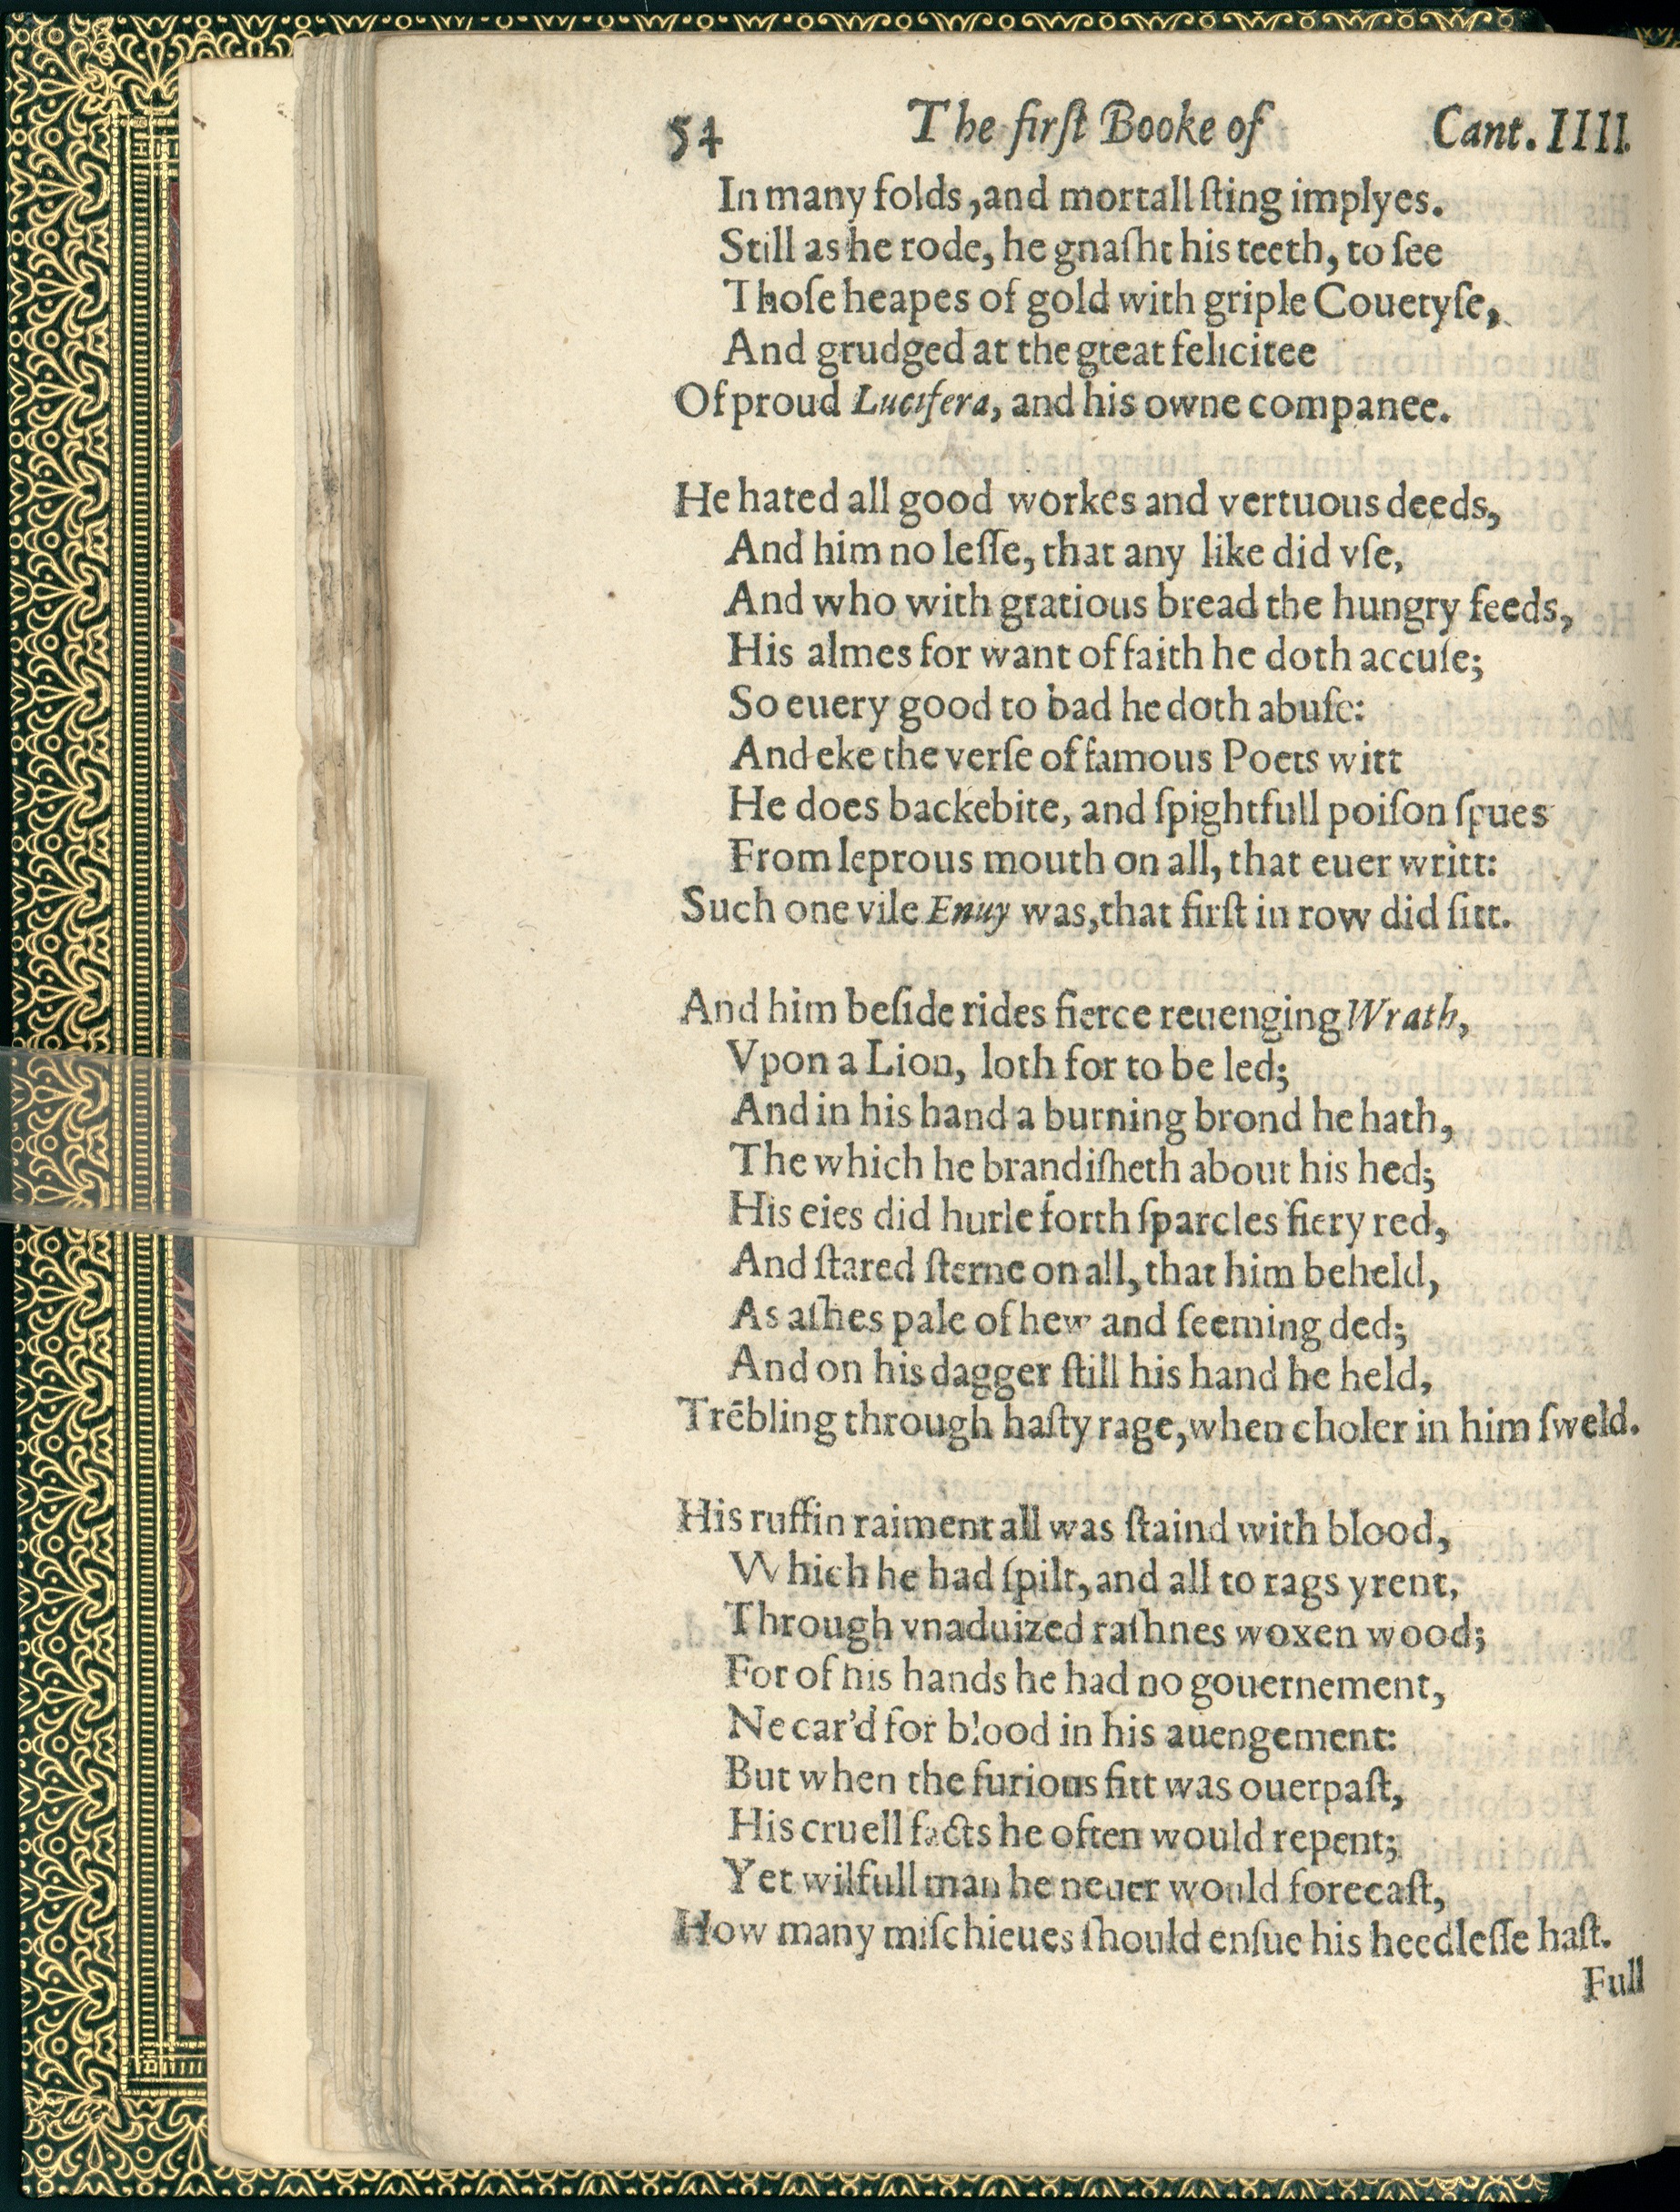 54 The firſt Booke of Cant. IIII.
In many folds, and mortall ſting implyes.
Still as he rode, he gnaſht his teeth, to ſee
Thoſe heapes of gold with griple Couetyſe,
And grudged at the gteat felicitee
Of proud Lucifera, and his owne companee.
He hated all good workes and vertuous deeds,
And him no leſſe, that any like did vſe,
And who with gratious bread the hungry feeds,
His almes for want of faith he doth accuſe;
So euery good to bad he doth abuſe:
And eke the verſe of famous Poets witt
He does backebite, and ſpightfull poiſon ſpues
From leprous mouth on all, that euer writt:
Such one vile Enuy was, that firſt in row did ſitt.
And him beſide rides fierce reuenging Wrath,
Vpon a Lion, loth for to be led;
And in his hand a burning brond he hath,
The which he brandiſheth about his hed;
His eies did hurle forth ſparcles fiery red,
And ſtared ſterne on all, that him beheld,
As aſhes pale of hew and ſeeming ded;
And on his dagger ſtill his hand he held,
Trēbling through haſty rage, when choler in him ſweld.
His ruffin raiment all was ſtaind with blood,
Which he had ſpilt, and all to rags yrent,
Through vnaduized raſhnes woxen wood;
For of his hands he had no gouernement,
Ne car'd for blood in his auengement:
But when the furious fitt was ouerpaſt,
His cruell facts he often would repent;
Yet wilfull man he neuer would forecaſt,
How many miſchieues ſhould enſue his heedleſſe haſt.
Full